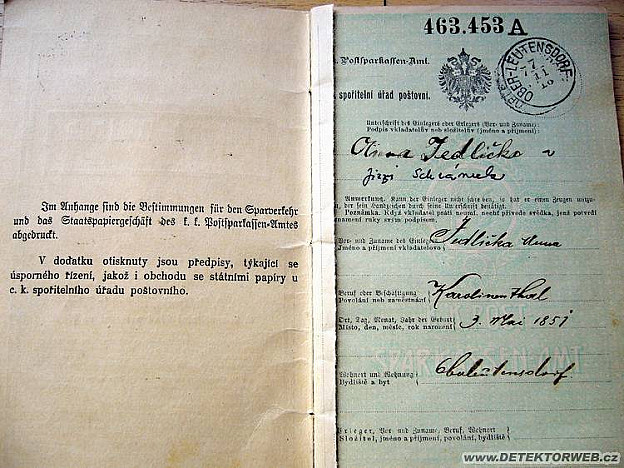 Im Anhange sind die Bestimmungen für den Sparverkehr
und das Staatspapiergeschäft des k. k. Postsparkassen-Amtes
abgedruckt.
V dodatku otisknuty jsou předpisy, týkající se
úsporného řízení, jakož i obchodu se státními papíry u
c. k. spořitelního úřadu poštovního.
463.453 A
Postsparkassen-Amt.
spořitelní úřad poštovní.
OBER-LEUTENSDORF
Unterschrift des Einlegers oder Erlegers (Vor- und Zuname):
Podpis vkladatelův neb složitelův (jméno a příjmení):
Jedlička
Anmerkung. Kann der Einleger nicht schreiben, so hat er einen Zeugen
der sein Handzeichen durch seine Unterschrift bestätigt.
Poznámka. Když vkladatel psáti neumí, nechť přivede svědka, jenž potvrdí
znamení ruky svým podpisem.
Vor- und Zuname des Einlegers Jedlička Anna
Jméno a příjmení vkladatele
Beruf oder Beschäftigung Karolinenthal
Povolání neb zaměstnání
Ort, Tag, Monat, Jahr der Geburt 3. Mai 1851
Místo, den, měsíc, rok narození
Wohnort und Wohnung Oberleutensdorf
Bydliště a byt
Erleger, Vor- und Zuname, Beruf, Wohnort
Složitel, jméno a příjmení, povolání, bydliště
WWW.DETEKTORWEB.cz